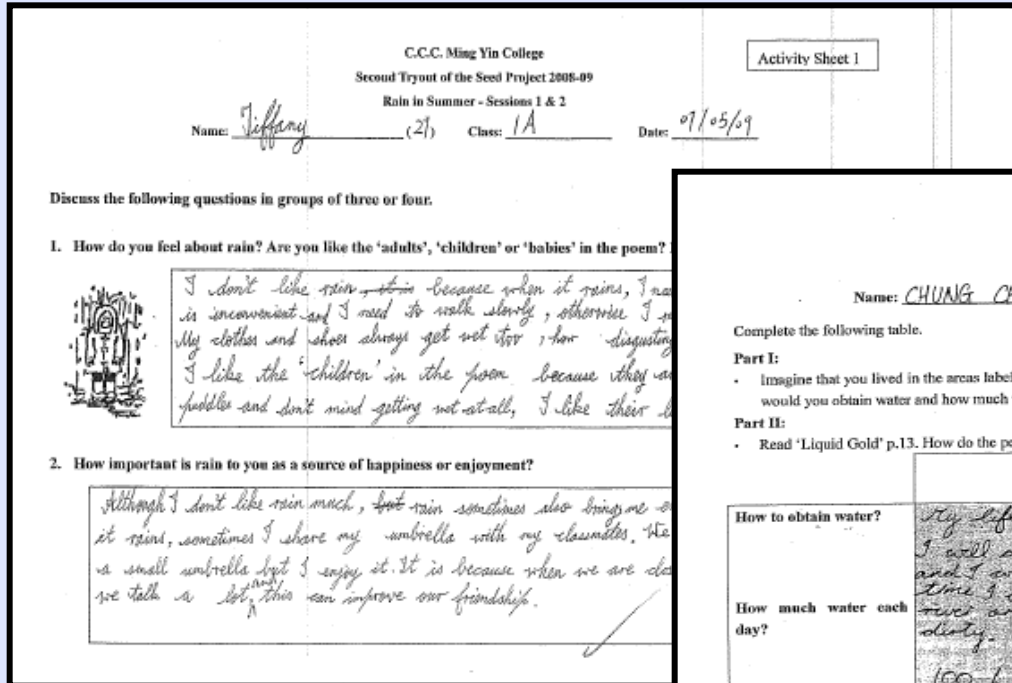 C.C.C. Ming Yin College
Activity Sheet 1
Second Tryout of the Seed Project 2008-09
Rain in Summer - Sessions 1 & 2
Name: Tiffany (21) Class: 1A Date: 07/05/09
Discuss the following questions in groups of three or four.
1. How do you feel about rain? Are you like the 'adults', 'children' or 'babies' in the poem?
I don't like rain, it is because when it rains, I
is inconvenient and I need to walk slowly, otherwise I
My clothes and shoes always get wet too, how disgusting
I like the 'children' in the poem because they
puddles and don't mind getting wet at all, I like their
2. How important is rain to you as a source of happiness or enjoyment?
Although I don't like rain much, but rain sometimes also brings me
it rains, sometimes I share my umbrella with my classmates. We
a small umbrella but I enjoy it. It is because when we are
we talk a lot, and this can improve our friendship.
Name: CHUNG
Complete the following table.
Part I:
· Imagine that you lived in the areas
would you obtain water and how much
Part II:
· Read 'Liquid Gold' p.13. How do the
How to obtain water?
My
I will
and I
time I
river
dirty.
How much water each
day?
100